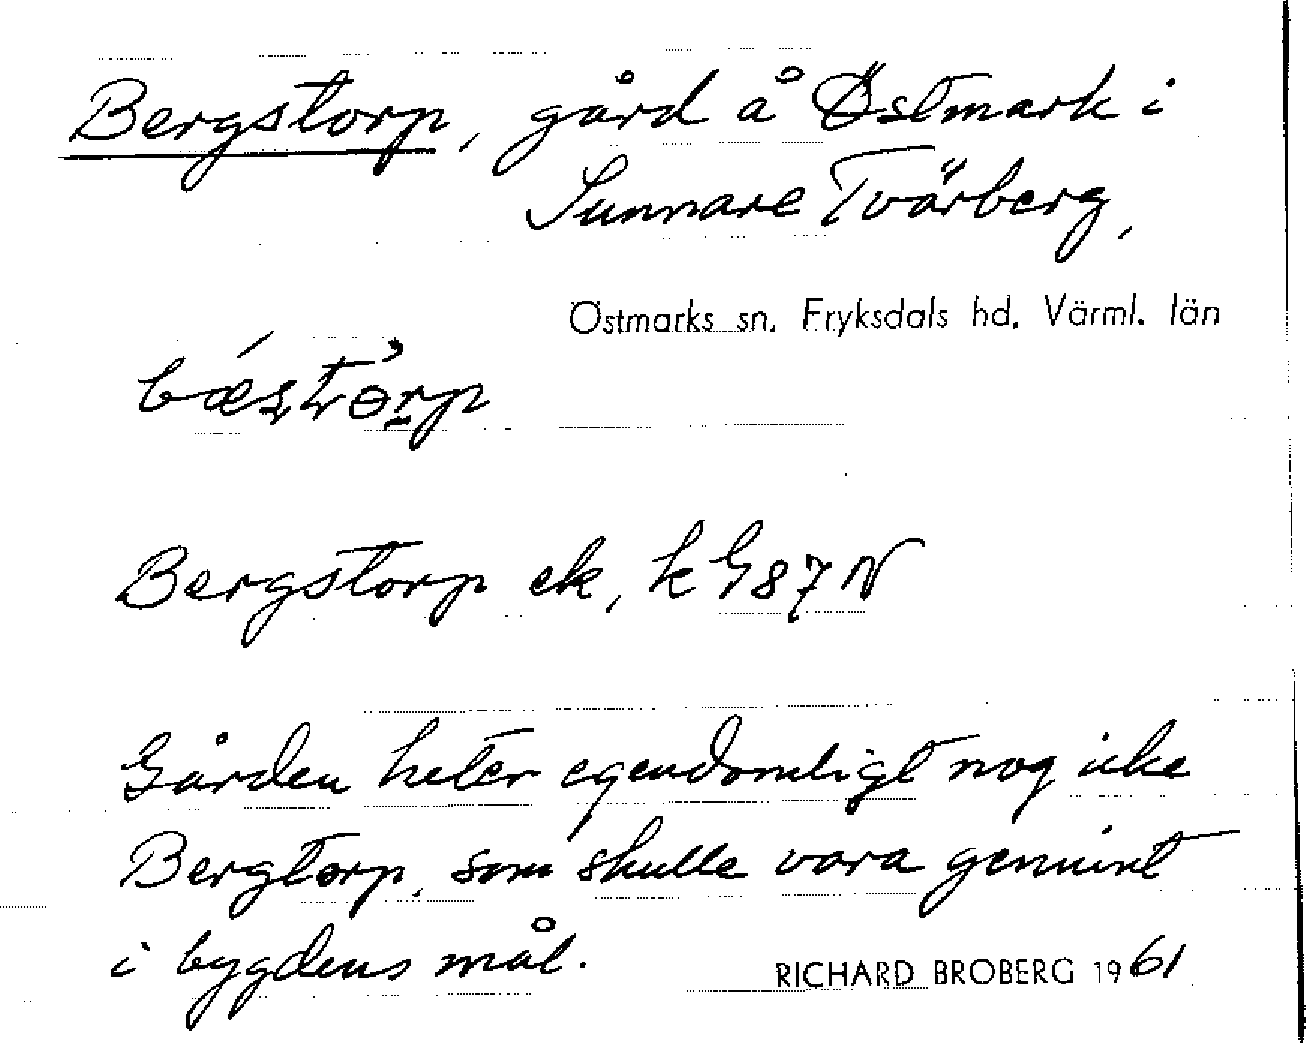 Bergstorp, gård å Östmark i
Sunnare Tvärberg,
Östmarks sn. Fryksdals hd. Värml. län
Bergstorp ek, k G87N
Gården heter egendomligt nog icke
Bergtorp, som skulle vara genuint
i bygdens mål.
RICHARD BROBERG 1961